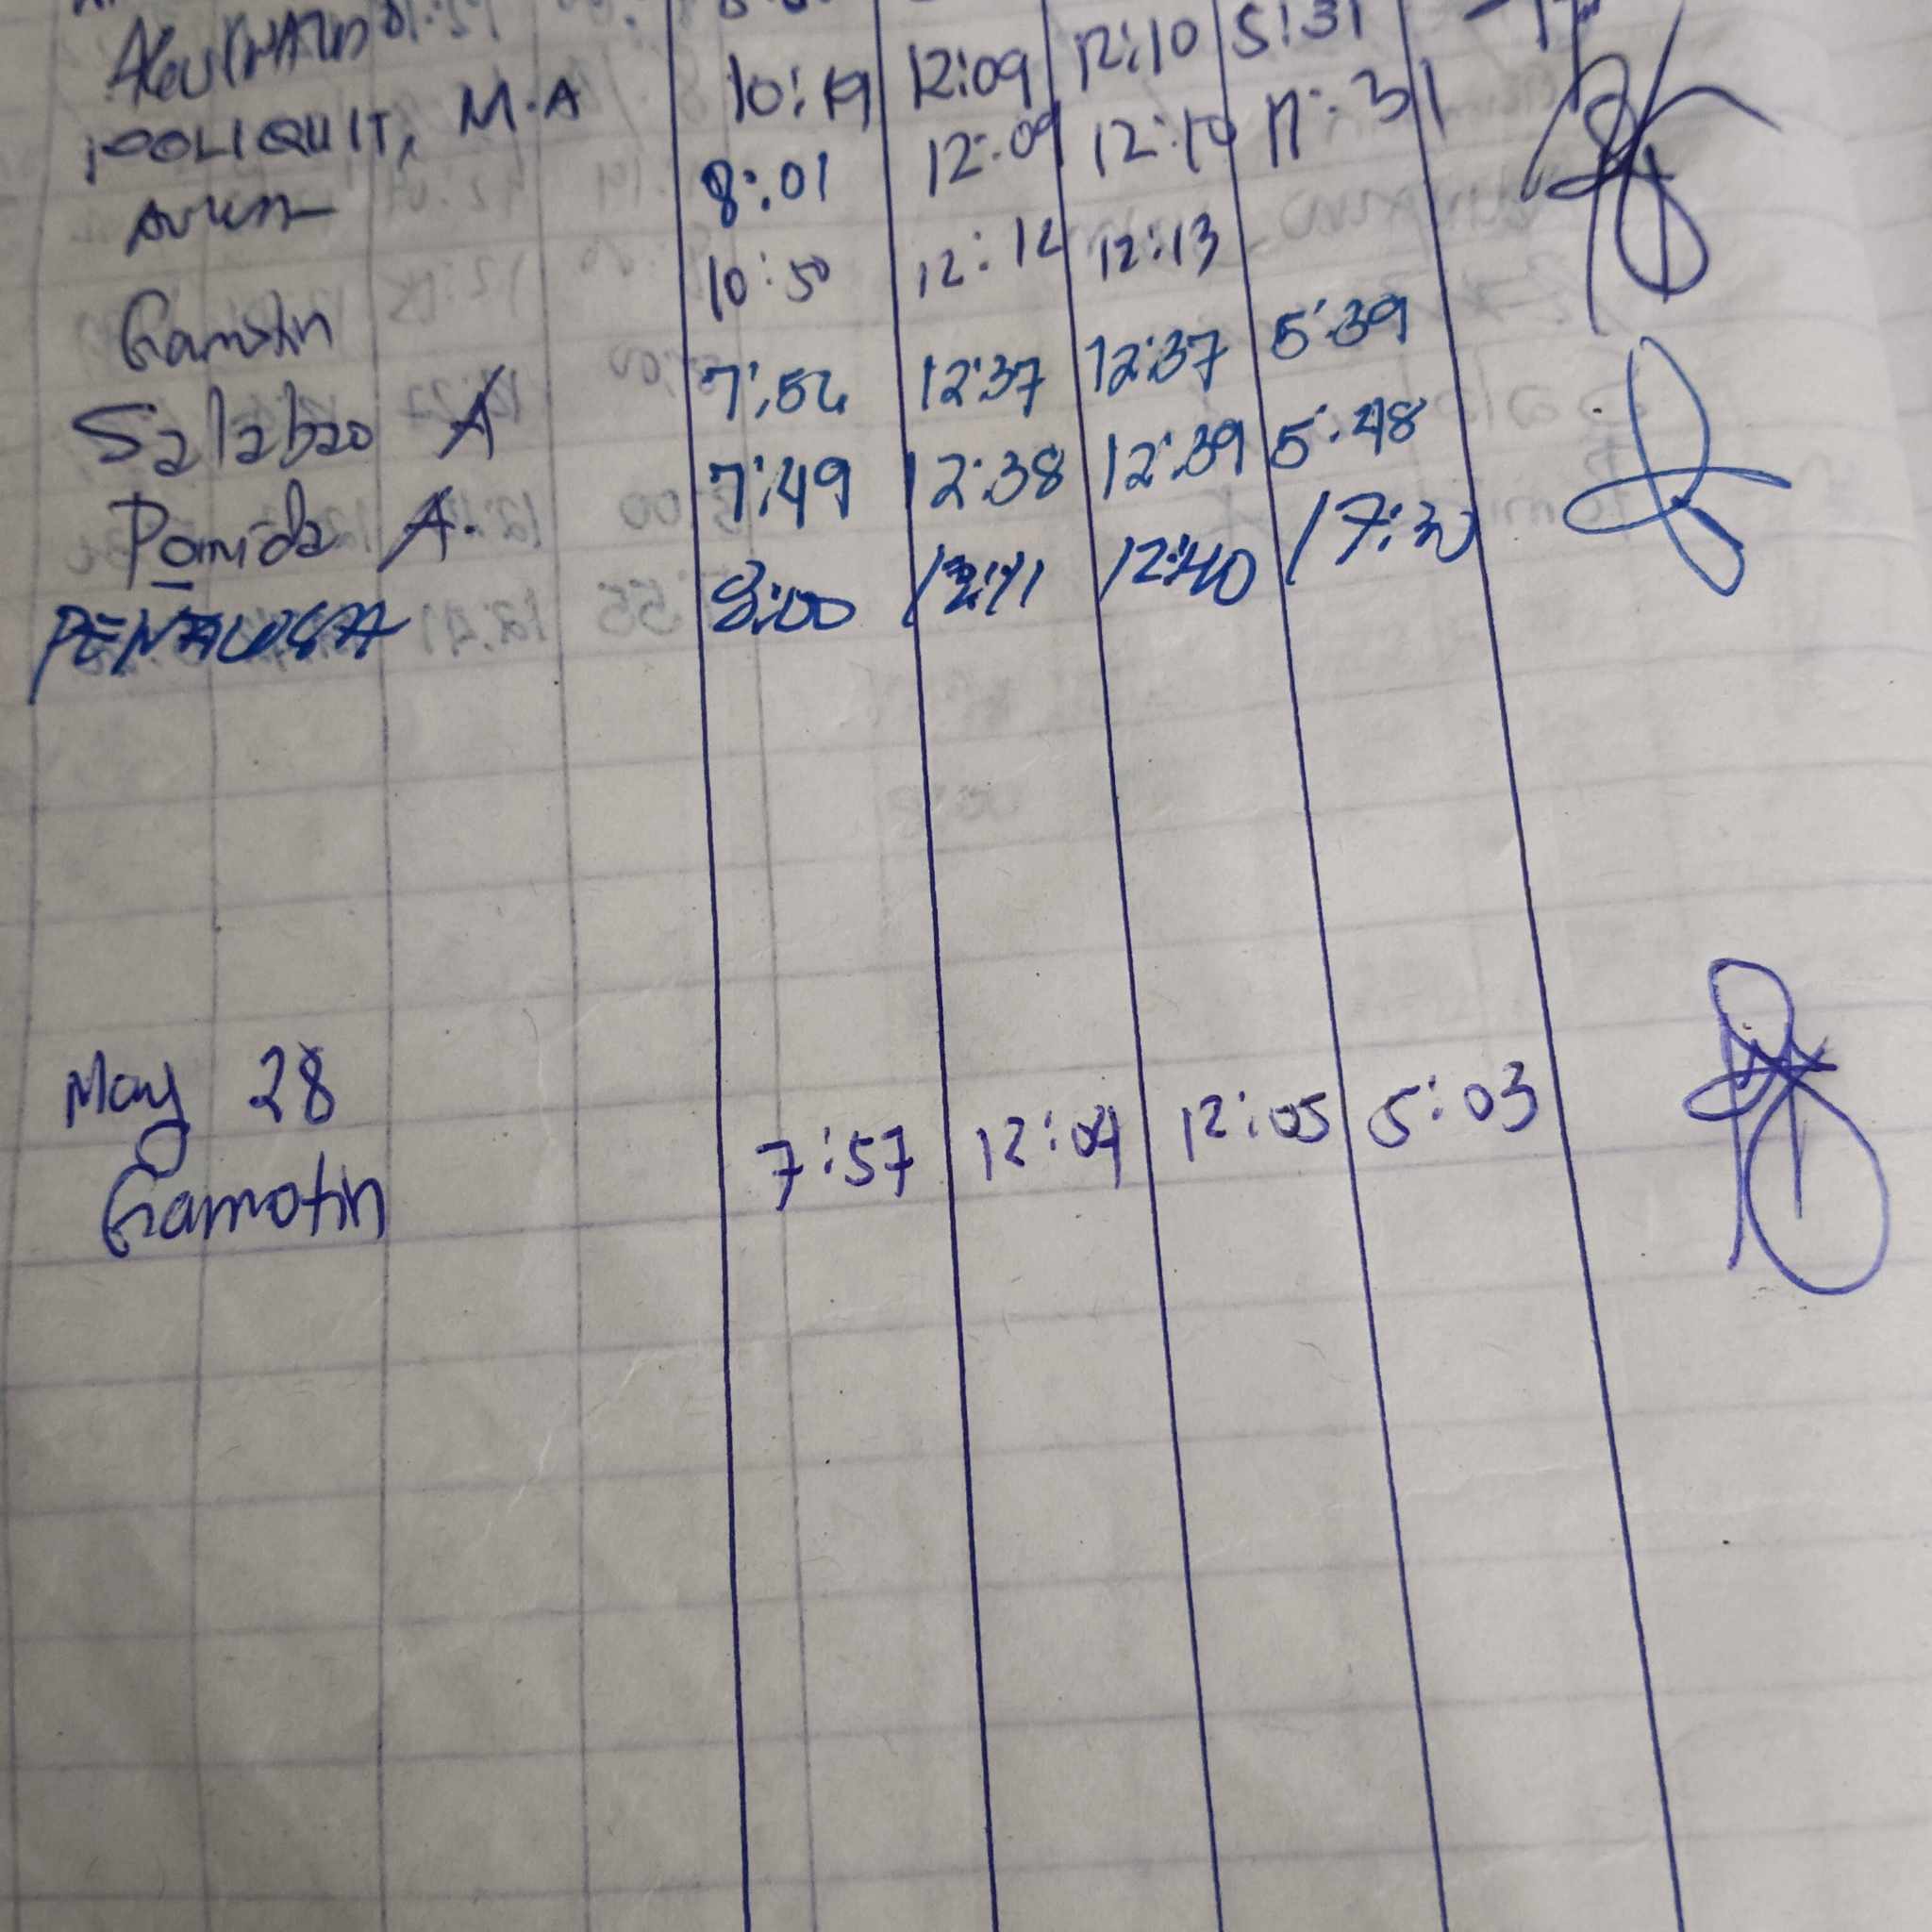 12:10 5:31
POLIQUIT, M.A 10:19 12:09 12:10 17:31
8:01 12:09
Gamotin 10:50 12:12 12:13
Salabao A 7:54 12:37 12:37 5:39
Pamida A. 7:49 12:38 12:39 5:48
8:00 12:11 12:40 17:30
May 28
Gamotin 7:57 12:04 12:05 5:03